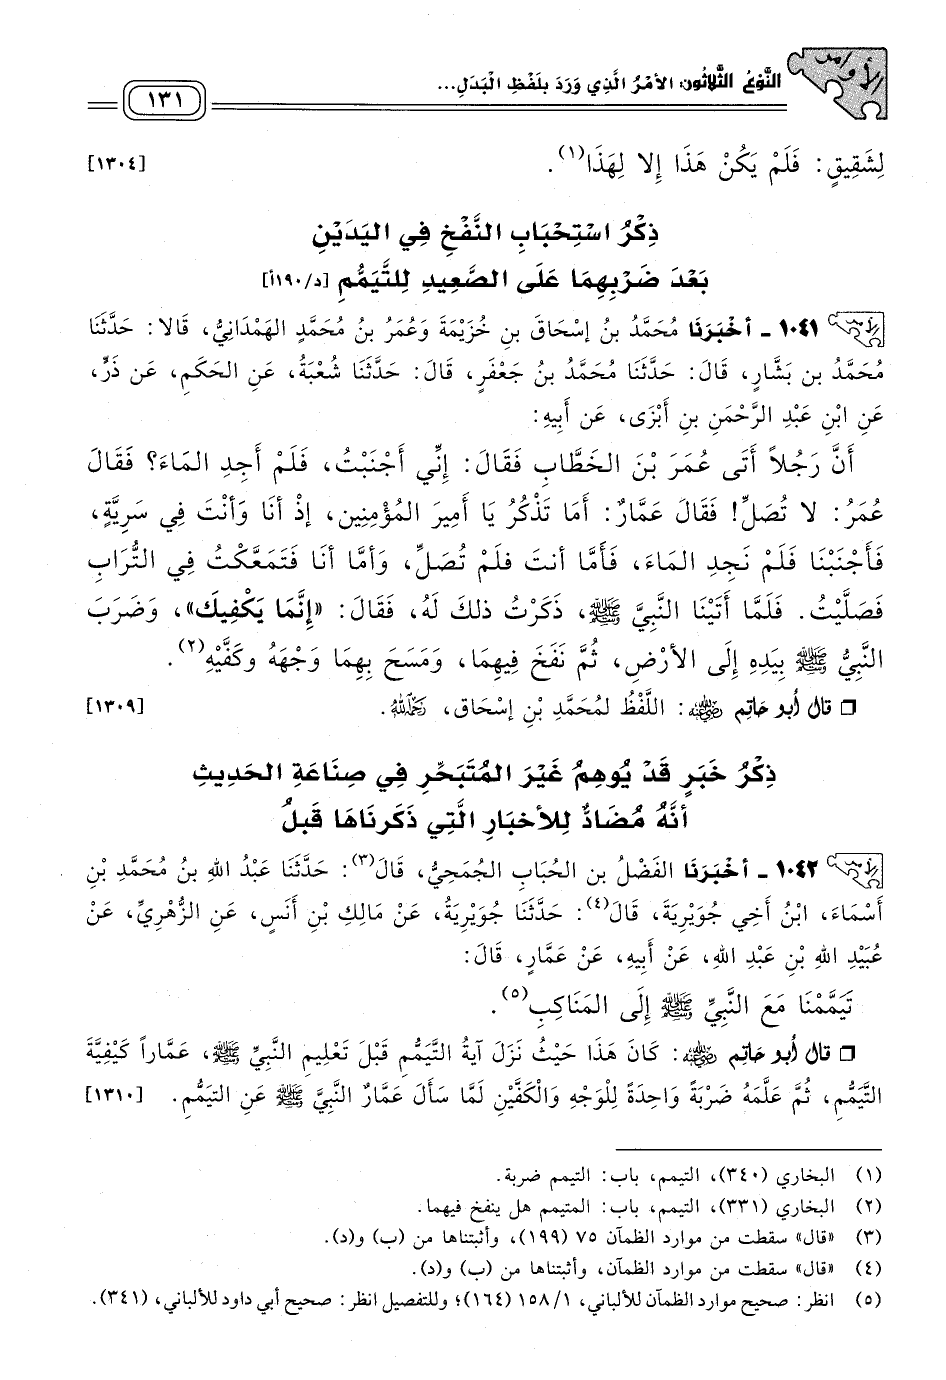 الأوامر
النَّوْعُ الثَّلَاثُون: الأَمْرُ الَّذِي وَرَدَ بِلَفْظِ الْبَدَلِ...
١٣١
لِشَقِيقٍ: فَلَمْ يَكُنْ هَذَا إِلا لِهَذَا(١). [١٣٠٤]
ذِكْرُ اسْتِحْبَابِ النَّفْخِ فِي اليَدَيْنِ
بَعْدَ ضَرْبِهِمَا عَلَى الصَّعِيدِ لِلتَّيَمُّمِ [د/١٩٠أ]
١٠٤١ - أخْبَرَنَا مُحَمَّدُ بنُ إسْحَاقَ بنِ خُزَيْمَةَ وَعُمَرُ بنُ مُحَمَّدٍ الهَمْدَانِيُّ، قَالا: حَدَّثَنَا
مُحَمَّدُ بن بَشَّارٍ، قَالَ: حَدَّثَنَا مُحَمَّدُ بنُ جَعْفَرٍ، قَالَ: حَدَّثَنَا شُعْبَةُ، عَنِ الحَكَمِ، عَن ذَرٍّ،
عَنِ ابْنِ عَبْدِ الرَّحْمَنِ بنِ أَبْزَى، عَن أَبِيهِ:
أَنَّ رَجُلاً أَتَى عُمَرَ بْنَ الخَطَّابِ فَقَالَ: إِنِّي أَجْنَبْتُ، فَلَمْ أَجِدِ المَاءَ؟ فَقَالَ
عُمَرُ: لا تُصَلِّ! فَقَالَ عَمَّارٌ: أمَا تَذْكُرُ يَا أَمِيرَ المُؤْمِنِين، إذْ أنَا وَأنْتَ فِي سَرِيَّةٍ،
فَأَجْنَبْنَا فَلَمْ نَجِدِ المَاءَ، فَأَمَّا أنتَ فلَمْ تُصَلِّ، وَأمَّا أنَا فَتَمَعَّكْتُ فِي التُّرَابِ
فَصَلَّيْتُ. فَلَمَّا أَتَيْنَا النَّبِيَّ ﷺ، ذَكَرْتُ ذلكَ لَهُ، فَقَالَ: «إِنَّمَا يَكْفِيكَ»، وَضَرَبَ
النَّبِيُّ ﷺ بِيَدِهِ إِلَى الأَرْضِ، ثُمَّ نَفَخَ فِيهِمَا، وَمَسَحَ بِهِمَا وَجْهَهُ وكَفَّيْهِ(٢).
□ قال أبو حَاتِم رضي الله عنه: اللَّفْظُ لمُحَمَّدِ بْنِ إسْحَاقَ، رحمه الله. [١٣٠٩]
ذِكْرُ خَبَرٍ قَدْ يُوهِمُ غَيْرَ المُتَبَحِّرِ فِي صِنَاعَةِ الحَدِيثِ
أنَّهُ مُضَادٌّ لِلأخبَارِ الَّتِي ذَكَرنَاهَا قَبلُ
١٠٤٢ - أخْبَرَنَا الفَضْلُ بن الحُبَابِ الجُمَحِيُّ، قَالَ(٣): حَدَّثَنَا عَبْدُ اللهِ بنُ مُحَمَّدِ بْنِ
أَسْمَاءَ، ابْنُ أَخِي جُوَيْرِيَةَ، قَالَ(٤): حَدَّثَنَا جُوَيْرِيَةُ، عَنْ مَالِكِ بْنِ أَنَسٍ، عَنِ الزُّهْرِيِّ، عَنْ
عُبَيْدِ اللهِ بْنِ عَبْدِ اللهِ، عَنْ أَبِيهِ، عَنْ عَمَّارٍ، قَالَ:
تَيَمَّمْنَا مَعَ النَّبِيِّ ﷺ إِلَى المَنَاكِبِ(٥).
□ قال أبو حَاتِم رضي الله عنه: كَانَ هَذَا حَيْثُ نَزَلَ آيَةُ التَّيَمُّمِ قَبْلَ تَعْلِيمِ النَّبِيِّ ﷺ، عَمَّاراً كَيْفِيَّةَ
التَّيَمُّمِ، ثُمَّ عَلَّمَهُ ضَرْبَةً وَاحِدَةً لِلْوَجْهِ وَالْكَفَّيْنِ لَمَّا سَأَلَ عَمَّارٌ النَّبِيَّ ﷺ عَنِ التيَمُّمِ. [١٣١٠]
(١) البخاري (٣٤٠)، التيمم، باب: التيمم ضربة.
(٢) البخاري (٣٣١)، التيمم، باب: المتيمم هل ينفخ فيهما.
(٣) «قال» سقطت من موارد الظمآن ٧٥ (١٩٩)، وأثبتناها من (ب) و(د).
(٤) «قال» سقطت من موارد الظمآن، وأثبتناها من (ب) و(د).
(٥) انظر: صحيح موارد الظمآن للألباني، ١٥٨/١ (١٦٤)؛ وللتفصيل انظر: صحيح أبي داود للألباني، (٣٤١).